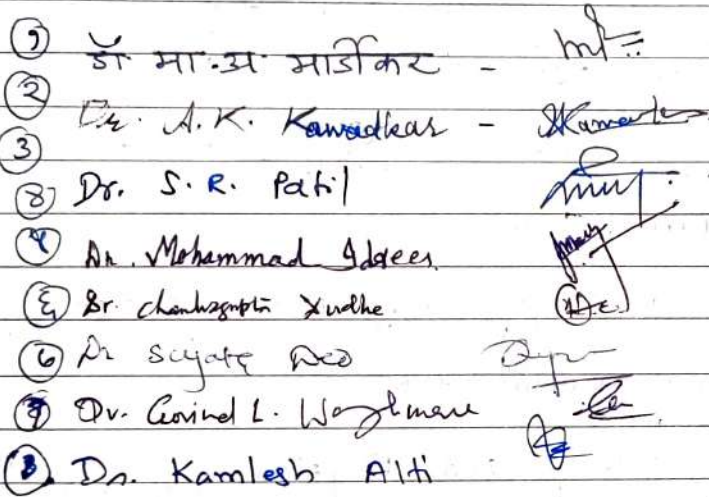 १ डॉ. मा.अ मार्डीकर -
२ Dr. A. K. Kawadkar -
३
४ Dr. S. R. Patil
५ Dr. Mohammad Idrees
६ Dr. Chandragupta
Dr Sujata Deo
Dr. Govind L. Waghmare
8 Dr. Kamlesh Alti